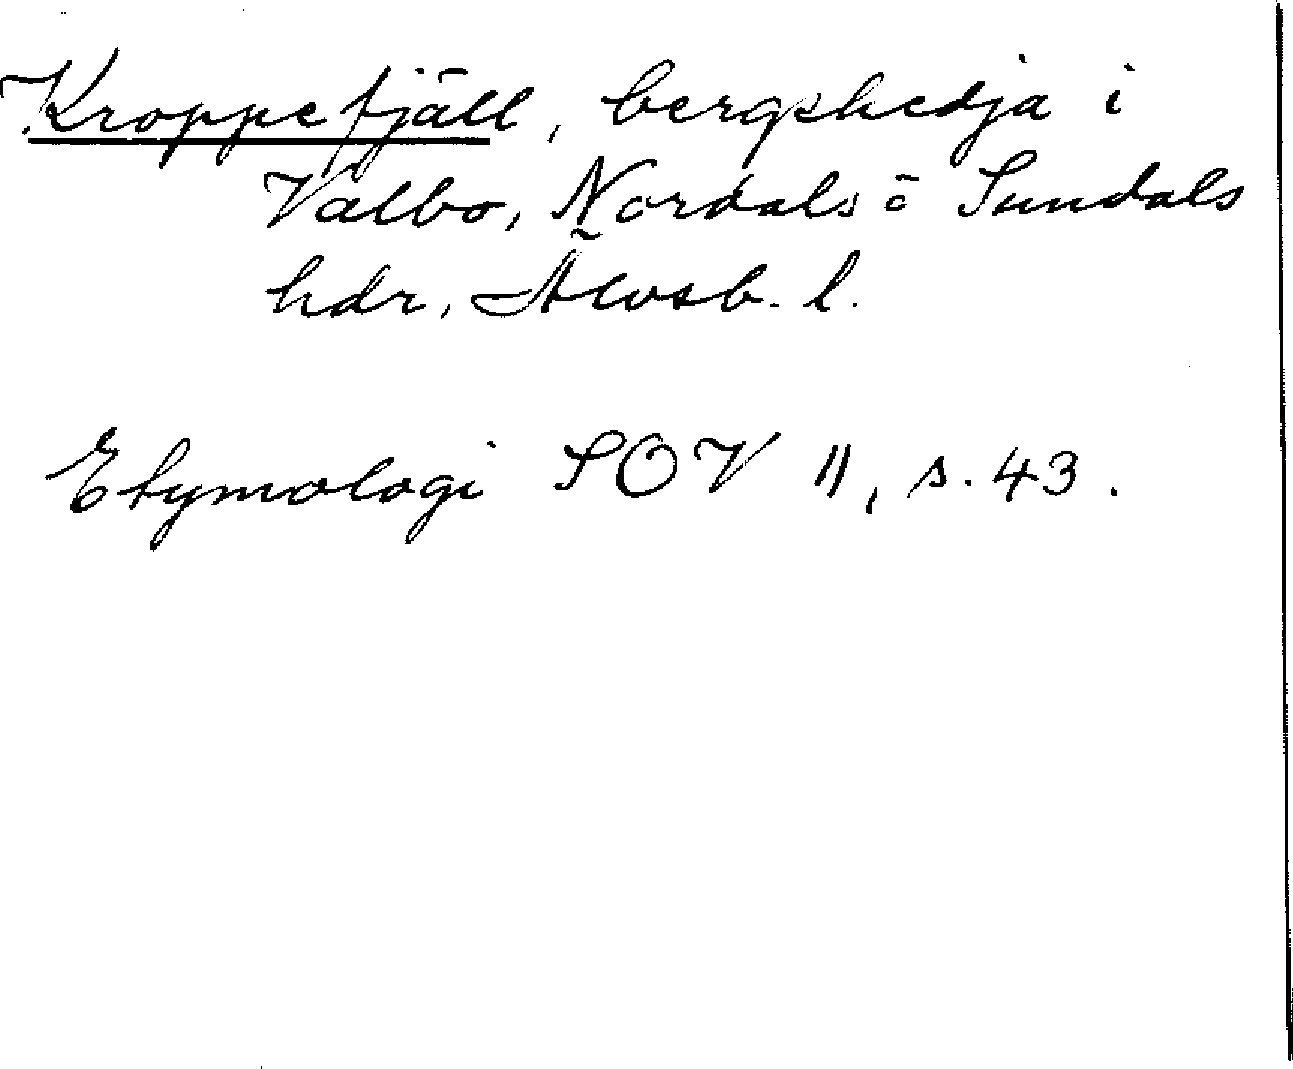 Kroppefjäll, bergskedja i
Valbo, Nordals o Sundals
hdr, Älvsb. l.
Etymologi SOV 11, s. 43.